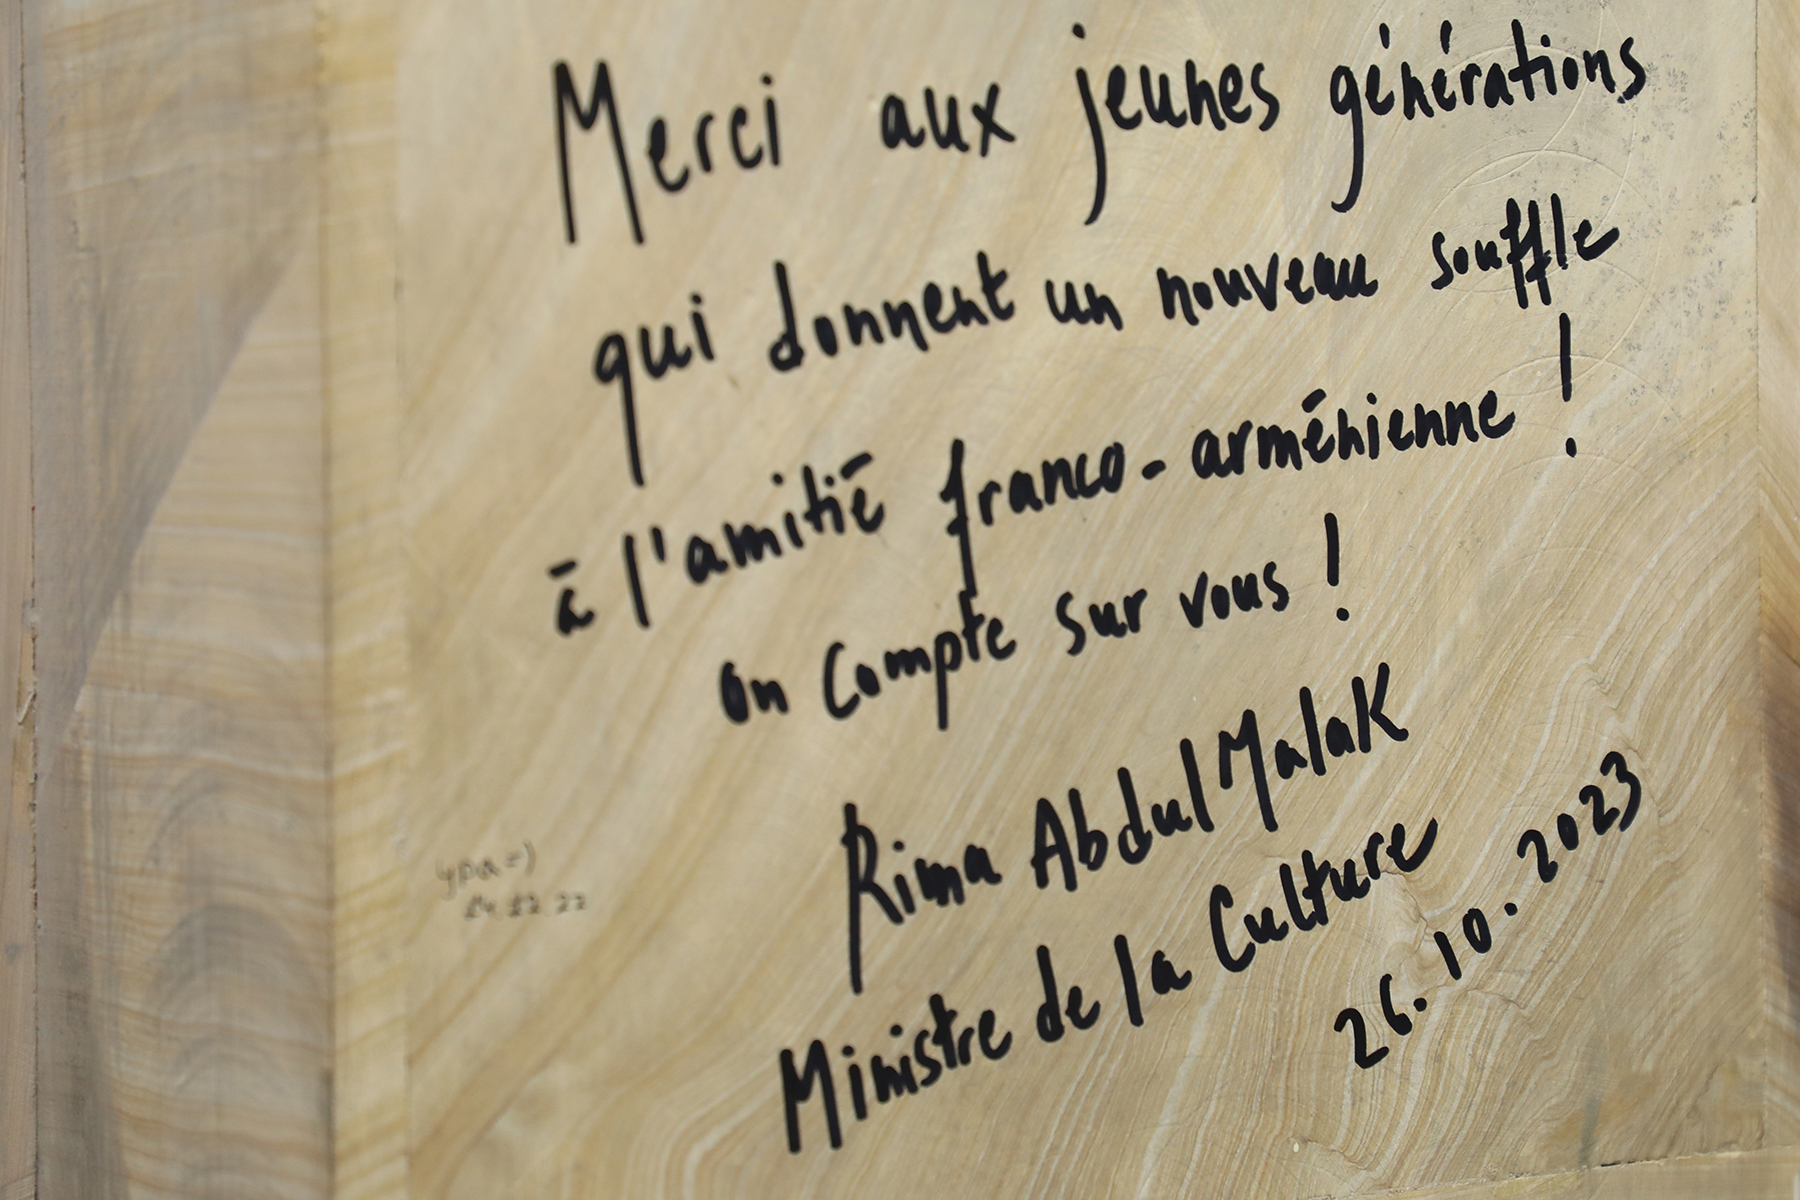 Merci aux jeunes générations
qui donnent un nouveau souffle
à l'amitié franco-arménienne !
on compte sur vous !
Rima Abdul Malak
Ministre de la Culture
26.10.2023